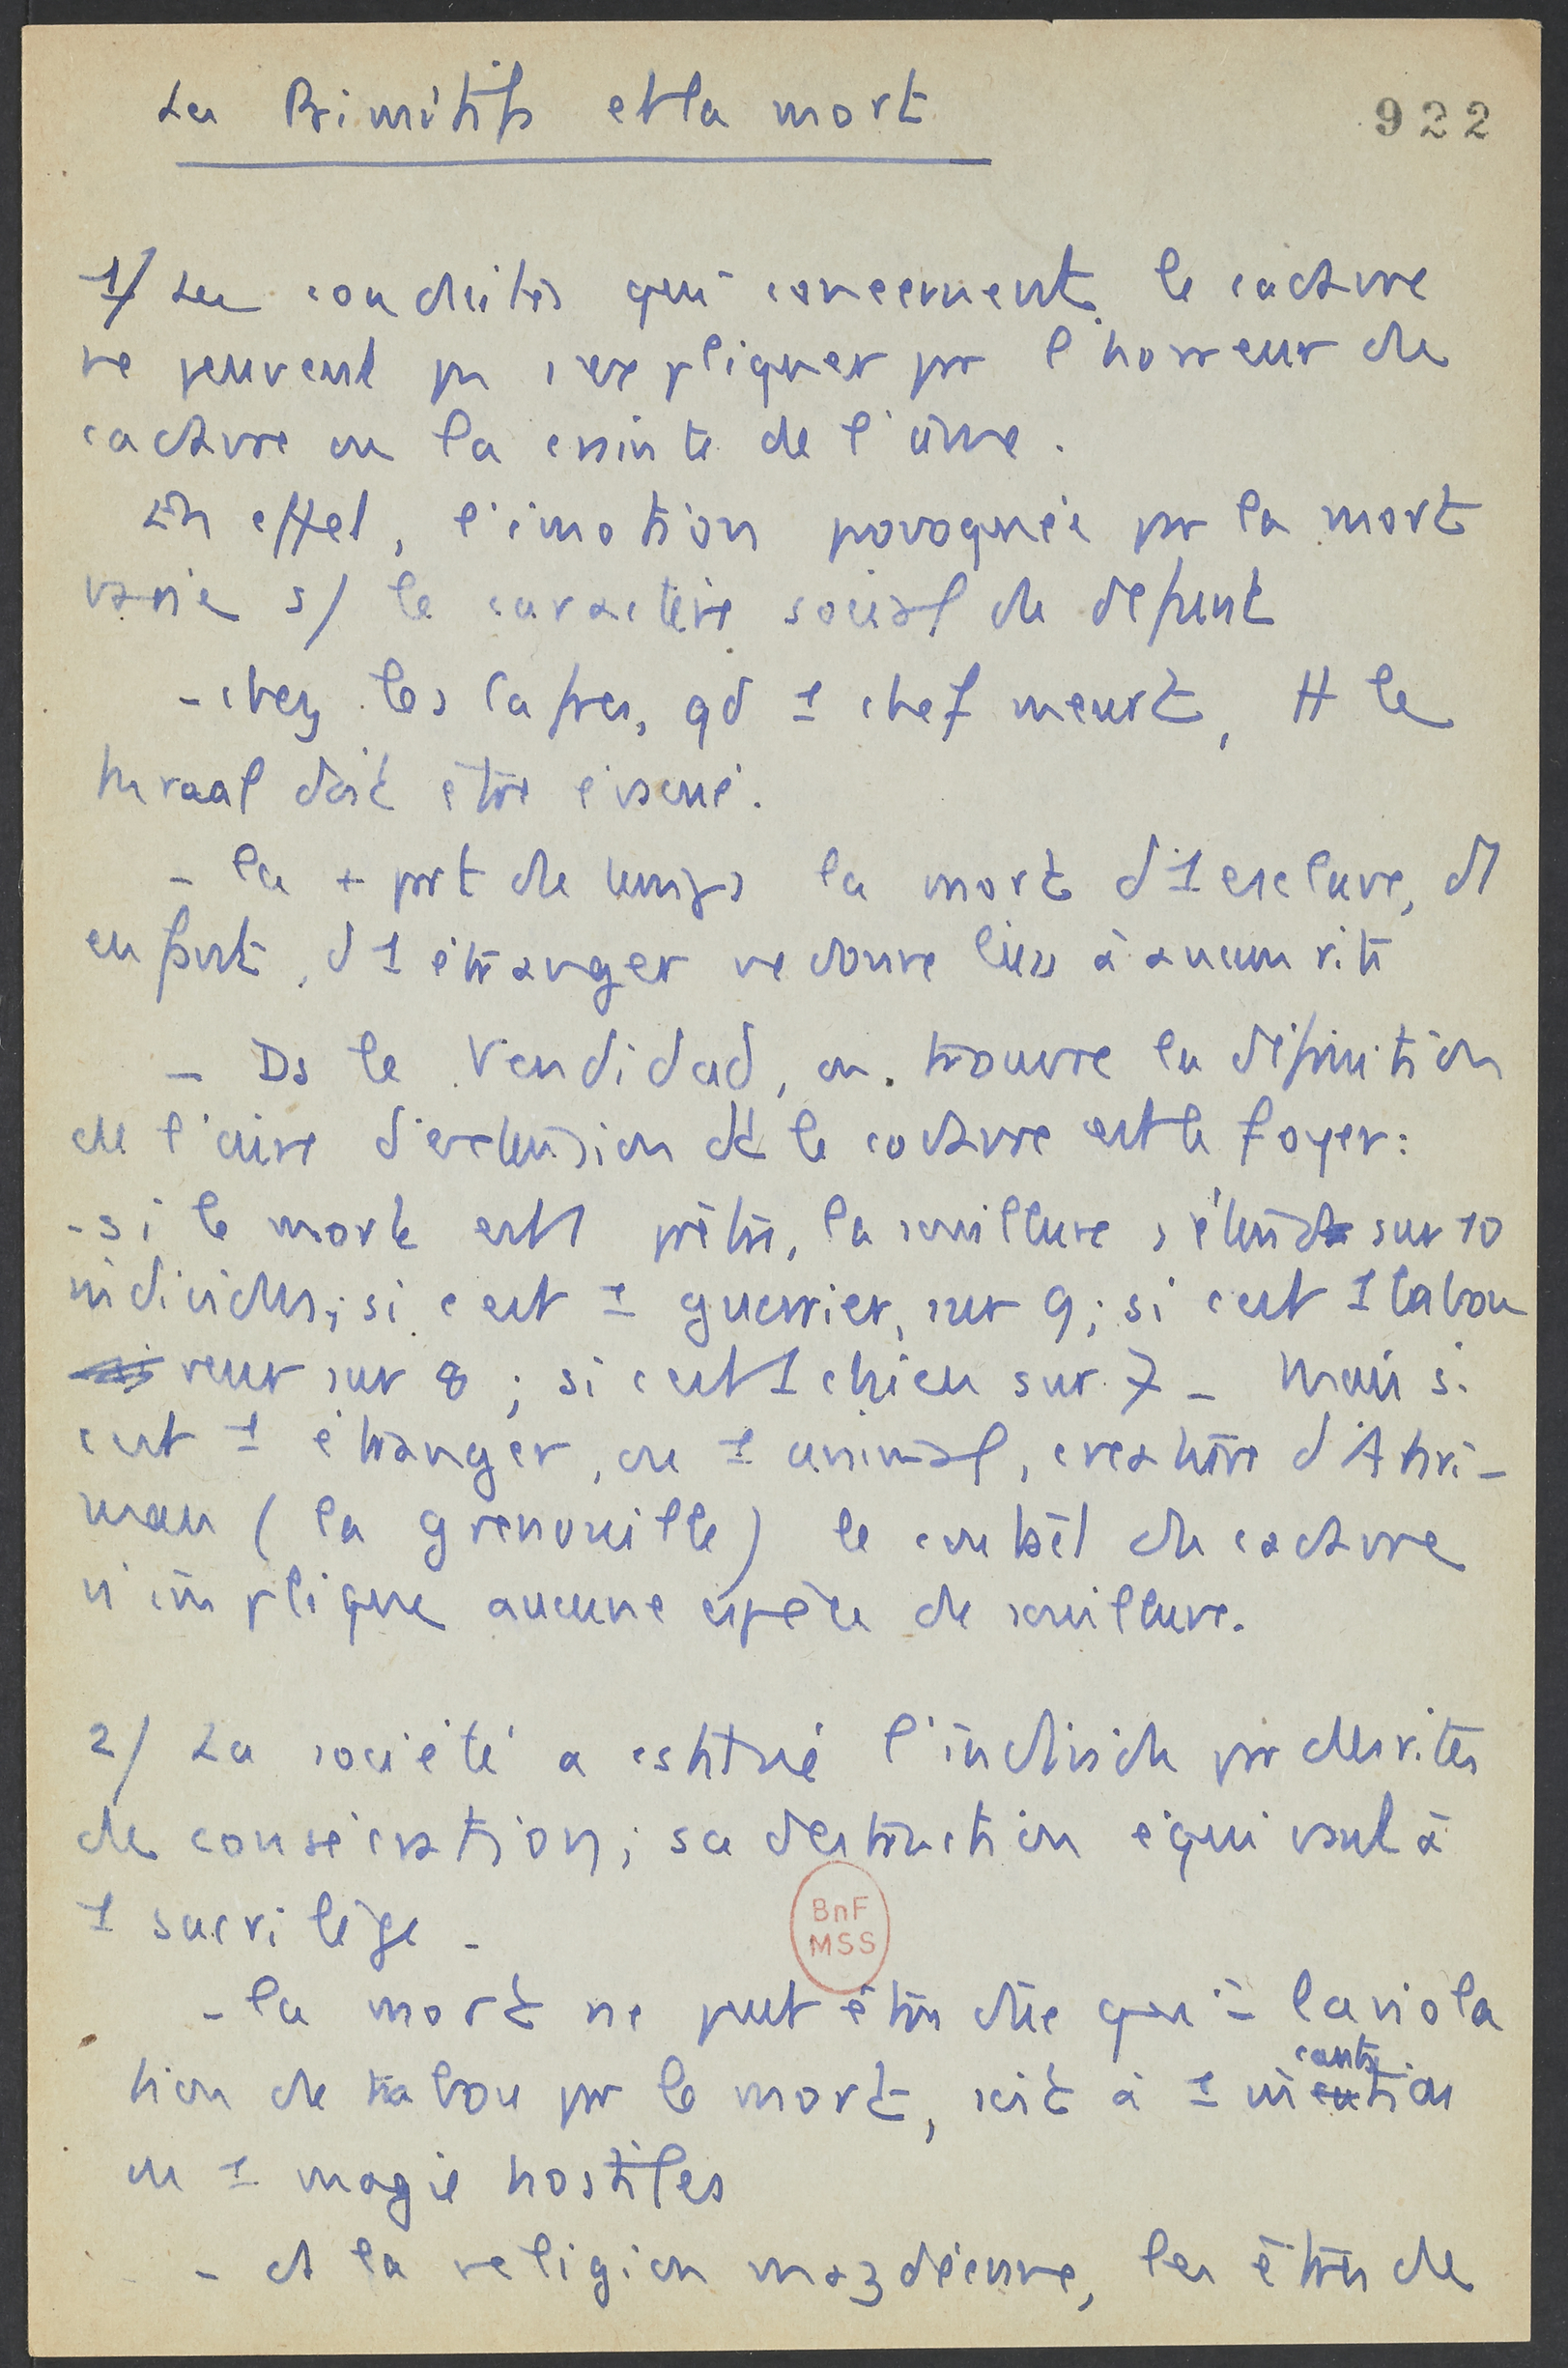 Les Primitifs et la mort
922
1/ Les conduites qui concernent le cadavre
ne peuvent pas s'expliquer par l'horreur du
cadavre ou la crainte de l'âme.
En effet, l'émotion provoquée par la mort
varie s/ le caractère social du défunt
- chez les Cafres, qd 1 chef meurt, tt le
kraal doit être évacué.
- la + part du temps la mort d'1 esclave, d'1
enfant, d'1 étranger ne donne lieu à aucun rite
- Ds le Vendidad, on trouve la définition
de l'aire d'extension dt le cadavre est le foyer :
- si le mort est 1 prêtre, la souillure s'étend sur 10
individus ; si c'est 1 guerrier, sur 9 ; si c'est 1 labou
reur sur 8 ; si c'est 1 chien sur 7 - Mais si
c'est 1 étranger, ou 1 animal, créature d'Ahri-
man (la grenouille) le contact du cadavre
n'implique aucune espèce de souillure.
2/ La société a constitué l'individu par des rites
de consécration ; sa destruction équivaut à
1 sacrilège -
BnF
MSS
- la mort ne peut être due qu'à la viola
tion de tabou par le mort, soit à 1 incantation
ou 1 magie hostiles
- ds la religion mazdéenne, les êtres de